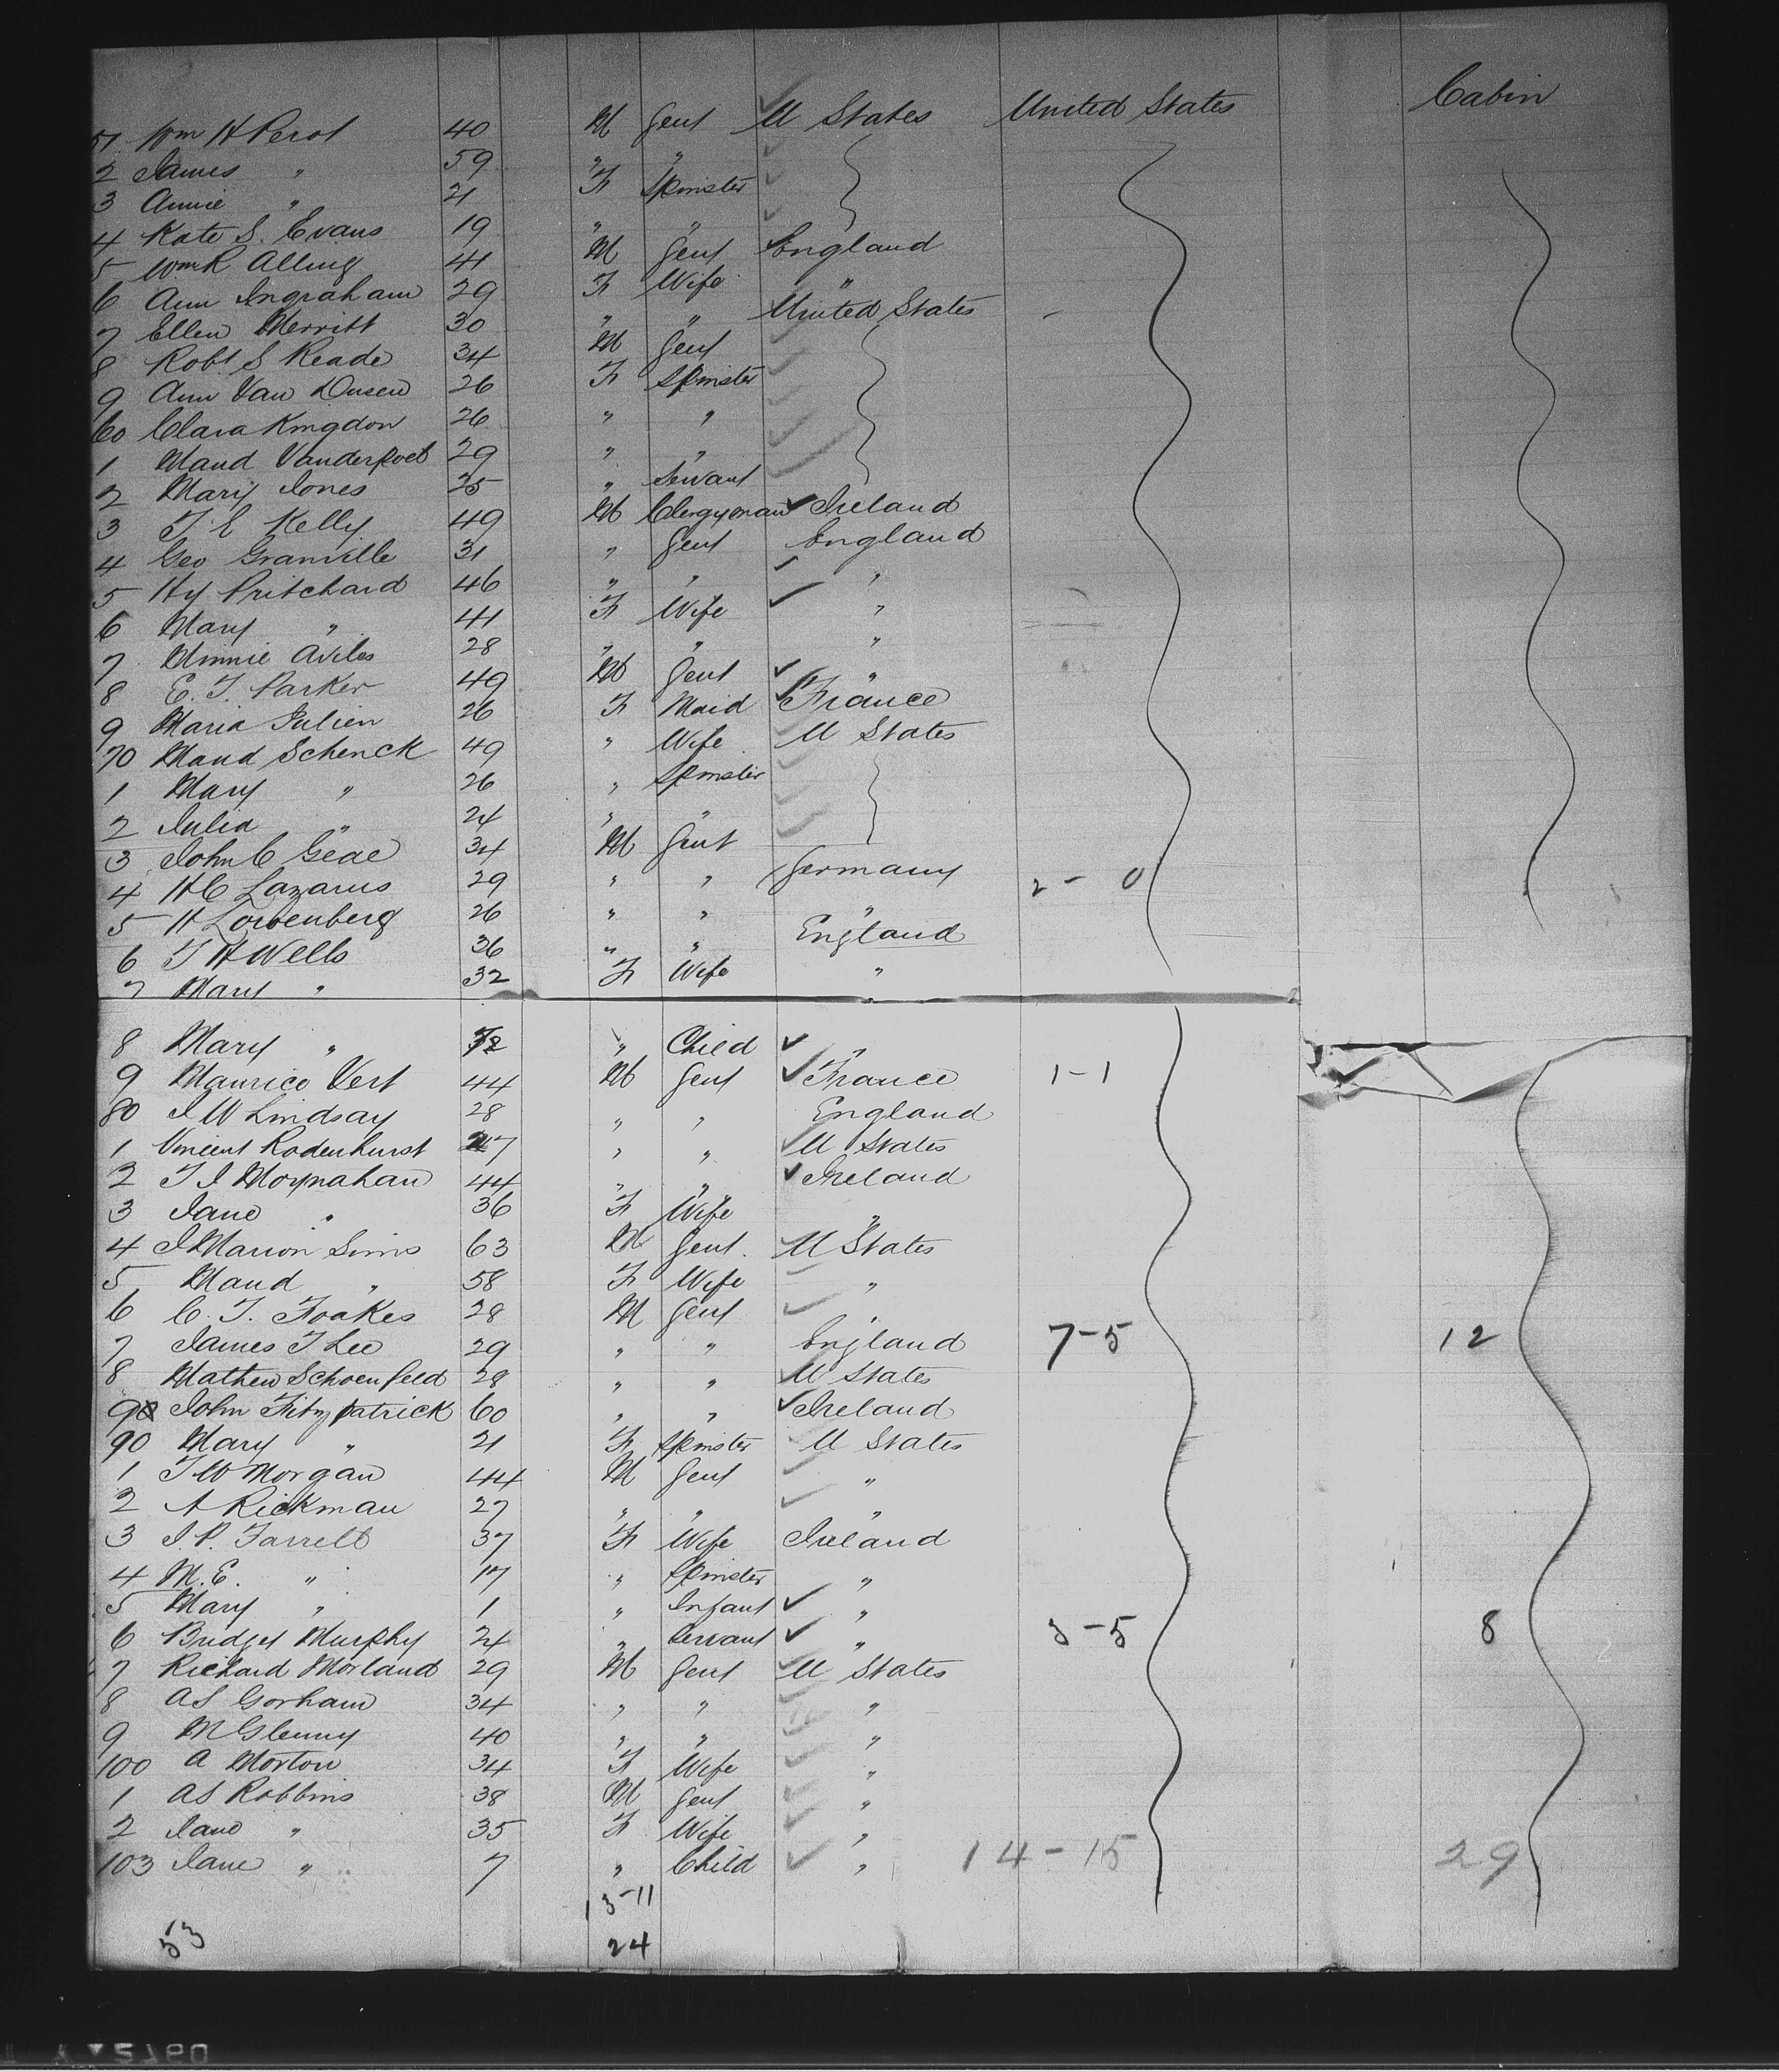 51 Wm H Perot 40 M Gent U States United States Cabin
2 James " 59 " "
3 Annie " 21 F Spinster
4 Kate S. Evans 19 " "
5 Wm R Alling 41 M Gent England
6 Ann Ingraham 29 F Wife "
7 Ellen Merritt 30 " " United States
8 Robt S Reade 34 M Gent
9 Ann Van Dusen 26 F Spinster
60 Clara Kingdon 26 " "
1 Maud Vanderpoel 29 " "
2 Mary Jones 25 " Servant
3 T. E Kelly 49 M Clergyman Ireland
4 Geo Granville 31 " Gent England
5 Hy Pritchard 46 " " "
6 Mary " 41 F Wife "
7 Minnie Aviles 28 " " "
8 E. T. Parker 49 M Gent "
9 Maria Julien 26 F Maid France
70 Maud Schenck 49 " Wife U States
1 Mary " 26 " Spinster
2 Julia " 24 " "
3 John C Gede 34 M Gent
4 H C Lazarus 29 " " Germany 2 - 0
5 H Lowenberg 26 " " "
6 T H Wells 36 " " England
7 Mary " 32 F Wife "
8 Mary " " Child "
9 Maurice Vert 44 M Gent France 1-1
80 J W Lindsay 28 " " England
1 Vincent Rodenhurst 27 " " U States
2 T J Moynahan 44 " " Ireland
3 Jane " 36 F Wife "
4 J Marion Sims 63 M Gent. U States
5 Maud " 58 F Wife "
6 C. T. Foakes 28 M Gent "
7 James T Lee 29 " " England 7-5 12
8 Mathew Schoenfeld 28 " " U States
9 John Fitzpatrick 60 " " Ireland
90 Mary " 21 F Spinster U States
1 T W Morgan 44 M Gent "
2 A Rickman 27 " " "
3 J. P. Farrell 37 F Wife Ireland
4 M. E. " 17 " Spinster "
5 Mary " 1 " Infant "
6 Bridget Murphy 24 " Servant " 3-5 8
7 Richard Morland 29 M Gent U States
8 A S Gorham 34 " " "
9 M Glenny 40 " " "
100 A Morton 34 F Wife "
1 A S Robbins 38 M Gent "
2 Jane " 35 F Wife "
103 Jane " 7 " Child " 14-15 29
13-11
53 24